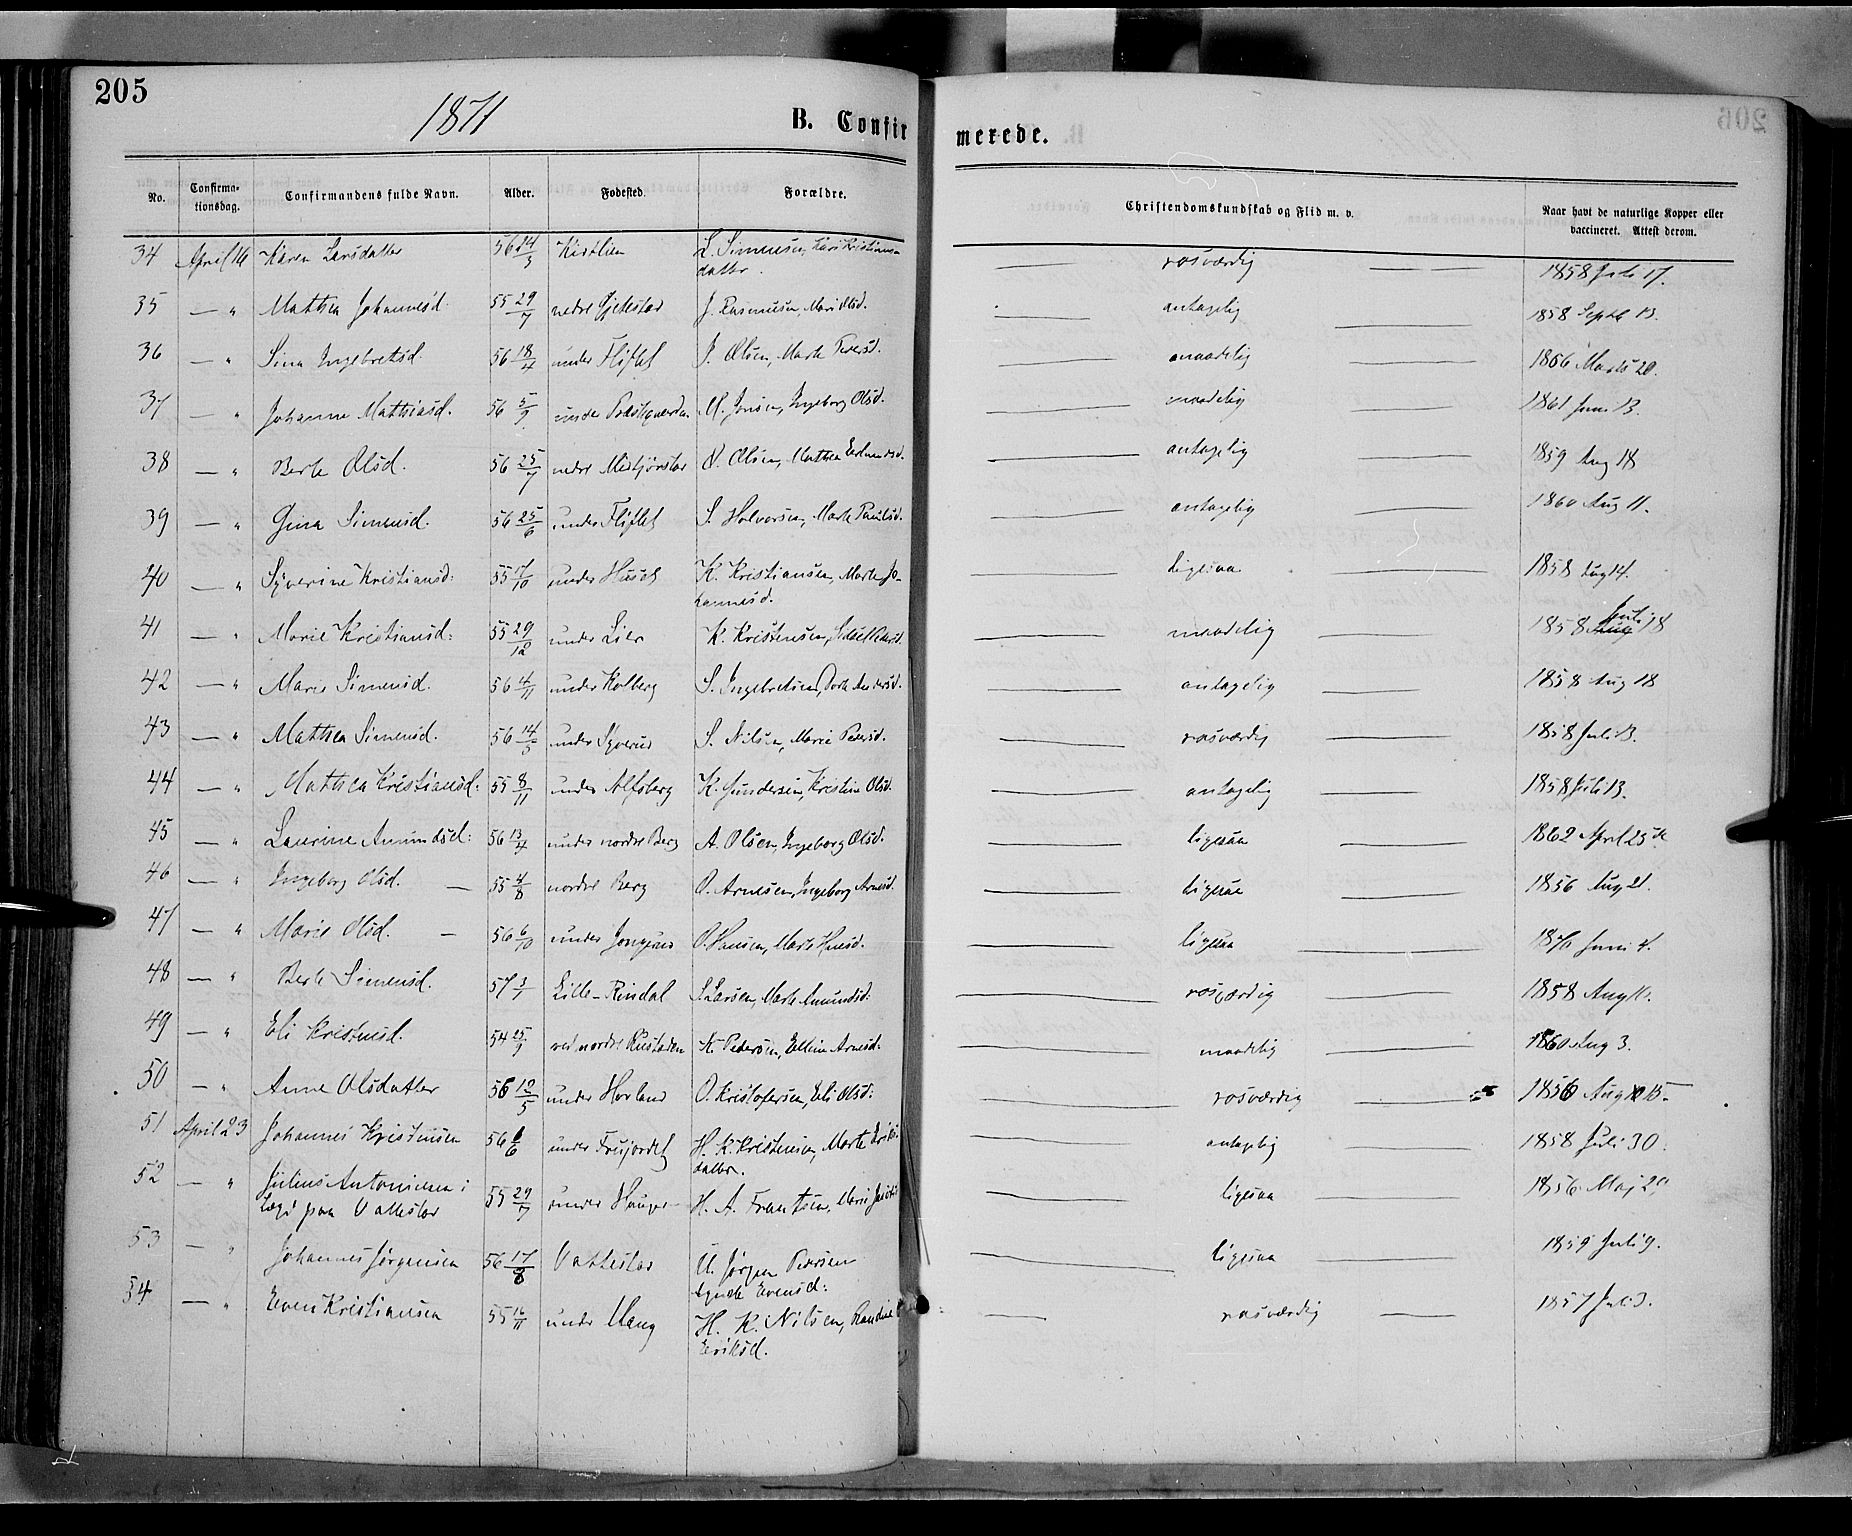 205
1871
B. Confirmerede.
No. Confirmationsdag. Confirmandens fulde Navn. Alder. Fødested. Forældre. Christendomskundskab og Flid m. v. Naar havt de naturlige Kopper eller vaccineret. Attest derom.
34 April 16 Karen Larsdatter 56 24/3 Kistlien L. Simensen, Kari Kristiansdatter. rosværdig 1858 Juli 17.
35 — " Mathea Johannesd. 55 29/7 nedre Gjelestad J. Rasmusen, Mari Olsd. antagelig 1858 Septb 13.
36 — " Sina Ingebretsd. 56 18/4 under Fliflet I. Olsen, Marte Pedersd. maadelig 1866 Marts 20.
37 — " Johanne Mathiasd. 56 5/9 under Præstgaarden M. Jonsen, Ingeborg Olsd. maadelig 1861 Juni 13.
38 — " Berte Olsd. 56 25/7 nedre Mistjørstad O. Olsen, Mathea antagelig 1859 Aug 18
39 — " Gina Simensd. 56 25/6 under Fliflet S. Halvorsen, Marte Paulsd. antagelig 1860 Aug 11.
40 — " Syverine Kristiansd: 55 17/10 under Huset K. Kristiansen, Marte Johannesd. ligesaa 1858 Aug 14.
41 — " Marie Kristiansd: 55 29/12 under Lier K. Kristensen, maadelig 1858 Juli 18
42 — " Marie Simensd. 56 4/11 under Kolberg S. Ingebretsen, Dorte Andersd. antagelig 1858 Aug 18
43 — " Mathea Simensd. 56 14/5 under Syverud S. Nilsen, Marie Pedersd. rosværdig 1858 Juli 13.
44 — " Mathea Kristiansd: 55 8/11 under Alfsberg K. Gundersen, Kristine Olsd. antagelig 1858 Juli 13.
45 — " Laurine Amundsd: 56 13/4 under nordre Berg A. Olsen, Ingeborg Olsd. ligesaa 1862 April 25de
46 — " Ingeborg Olsd. — 55 4/8 nordre Berg O. Arnesen, Ingeborg Arnesd. ligesaa 1856 Aug 21.
47 — " Marie Olsd. — 56 6/10 under O. Hansen, Marte ligesaa Juni 4.
48 — " Berte Simensd. 57 3/1 Lille-Rindal S. Larsen, Marte Amundsd: rosværdig 1858 Aug
49 — " Eli Kristensd. 54 25/9 ved nordre Rustaden K. Pedersen, Elline Arnesd: maadelig 1860 Aug 3.
50 — " Anne Olsdatter 56 12/5 under Hovland O. Kristofersen, Eli Olsd: rosværdig 1856 Aug 15
51 April 23 Johannes Kristensen 56 6/6 under H. K. Kristensen, Marte Eriksdatter. antagelig 1858 Juli 30.
52 — " Julius Antonisen i Lægd paa Vallestad 55 29/7 under Hauger H. A. Frantsen, Marie ligesaa 1856 Maj 29
53 — " Johannes Jørgensen 56 17/8 Vallestad U. Jørgen Pedersen Agnete Evensd: ligesaa 1859 Juli 9.
54 — " Even Kristiansen 55 16/11 under Haug H. K. Nilsen, Randine Eriksd. rosværdig 1857 Juli 3.